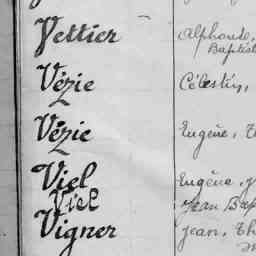 Vettier Alphonse,
Baptist
Vézie Célestin,
Vézie Eugène,
Viel Eugène,
Viel Jean Bap
Vigner Jean,